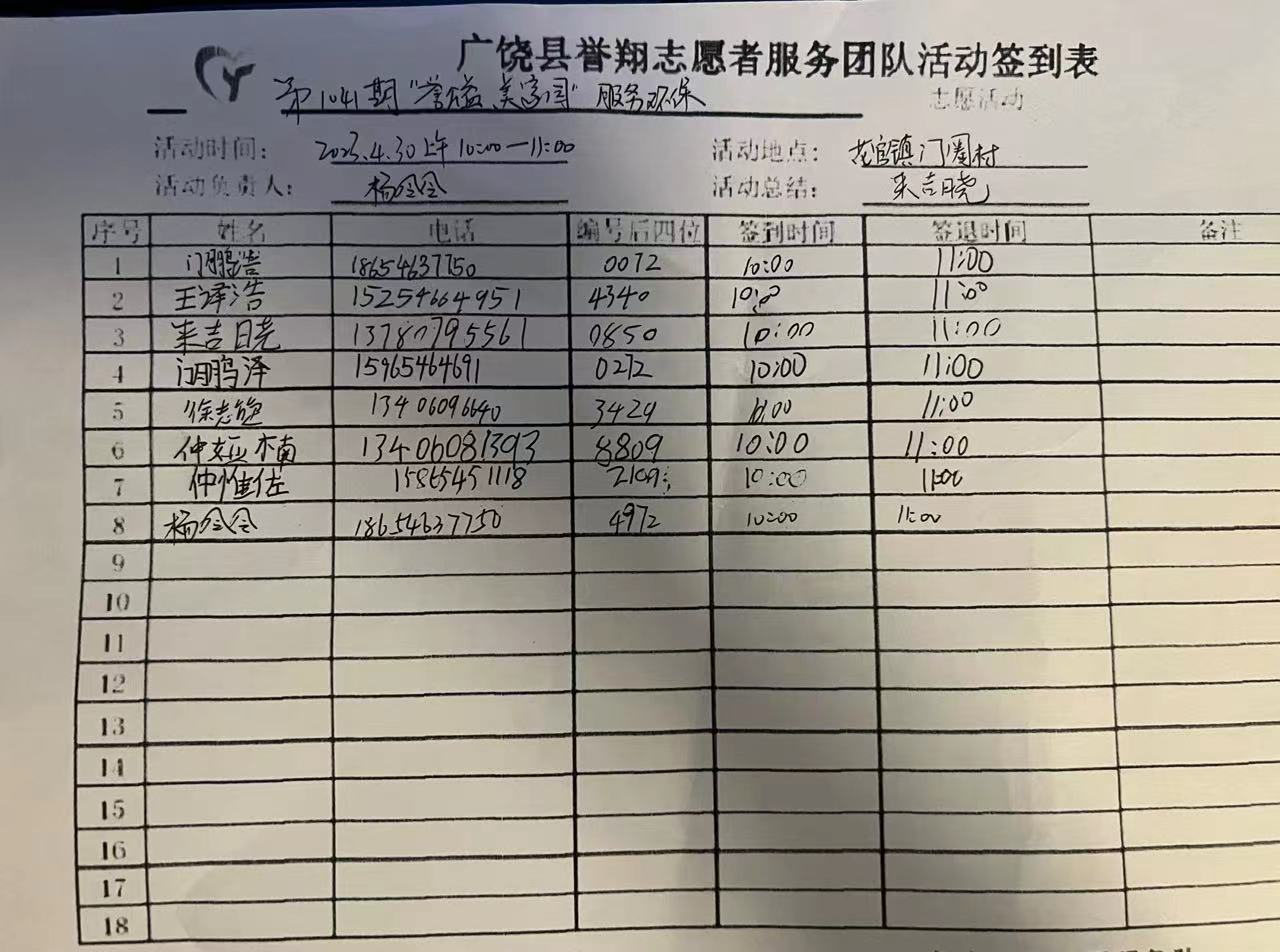 广饶县誉翔志愿者服务团队活动签到表
第1041期"誉溢美家园"服务环保 志愿活动
活动时间: 2023.4.30上午10:00—11:00 活动地点: 花官镇门圈村
活动负责人: 杨会会 活动总结: 来吉晓
序号 姓名 电话 编号后四位 签到时间 签退时间 备注
1 门鹏浩 18654637750 0072 10:00 11:00
2 王译浩 15254664951 4340 10:0 11:00
3 来吉晓 13780795561 0850 10:00 11:00
4 门鹏泽 15965464691 0272 10:00 11:00
5 徐志 13406096640 3429 10:00 11:00
6 仲楠 13406081393 8809 10:00 11:00
7 仲惟佐 15865451118 2109 10:00 11:00
8 杨会会 18654637750 4972 10:00 11:00
9
10
11
12
13
14
15
16
17
18